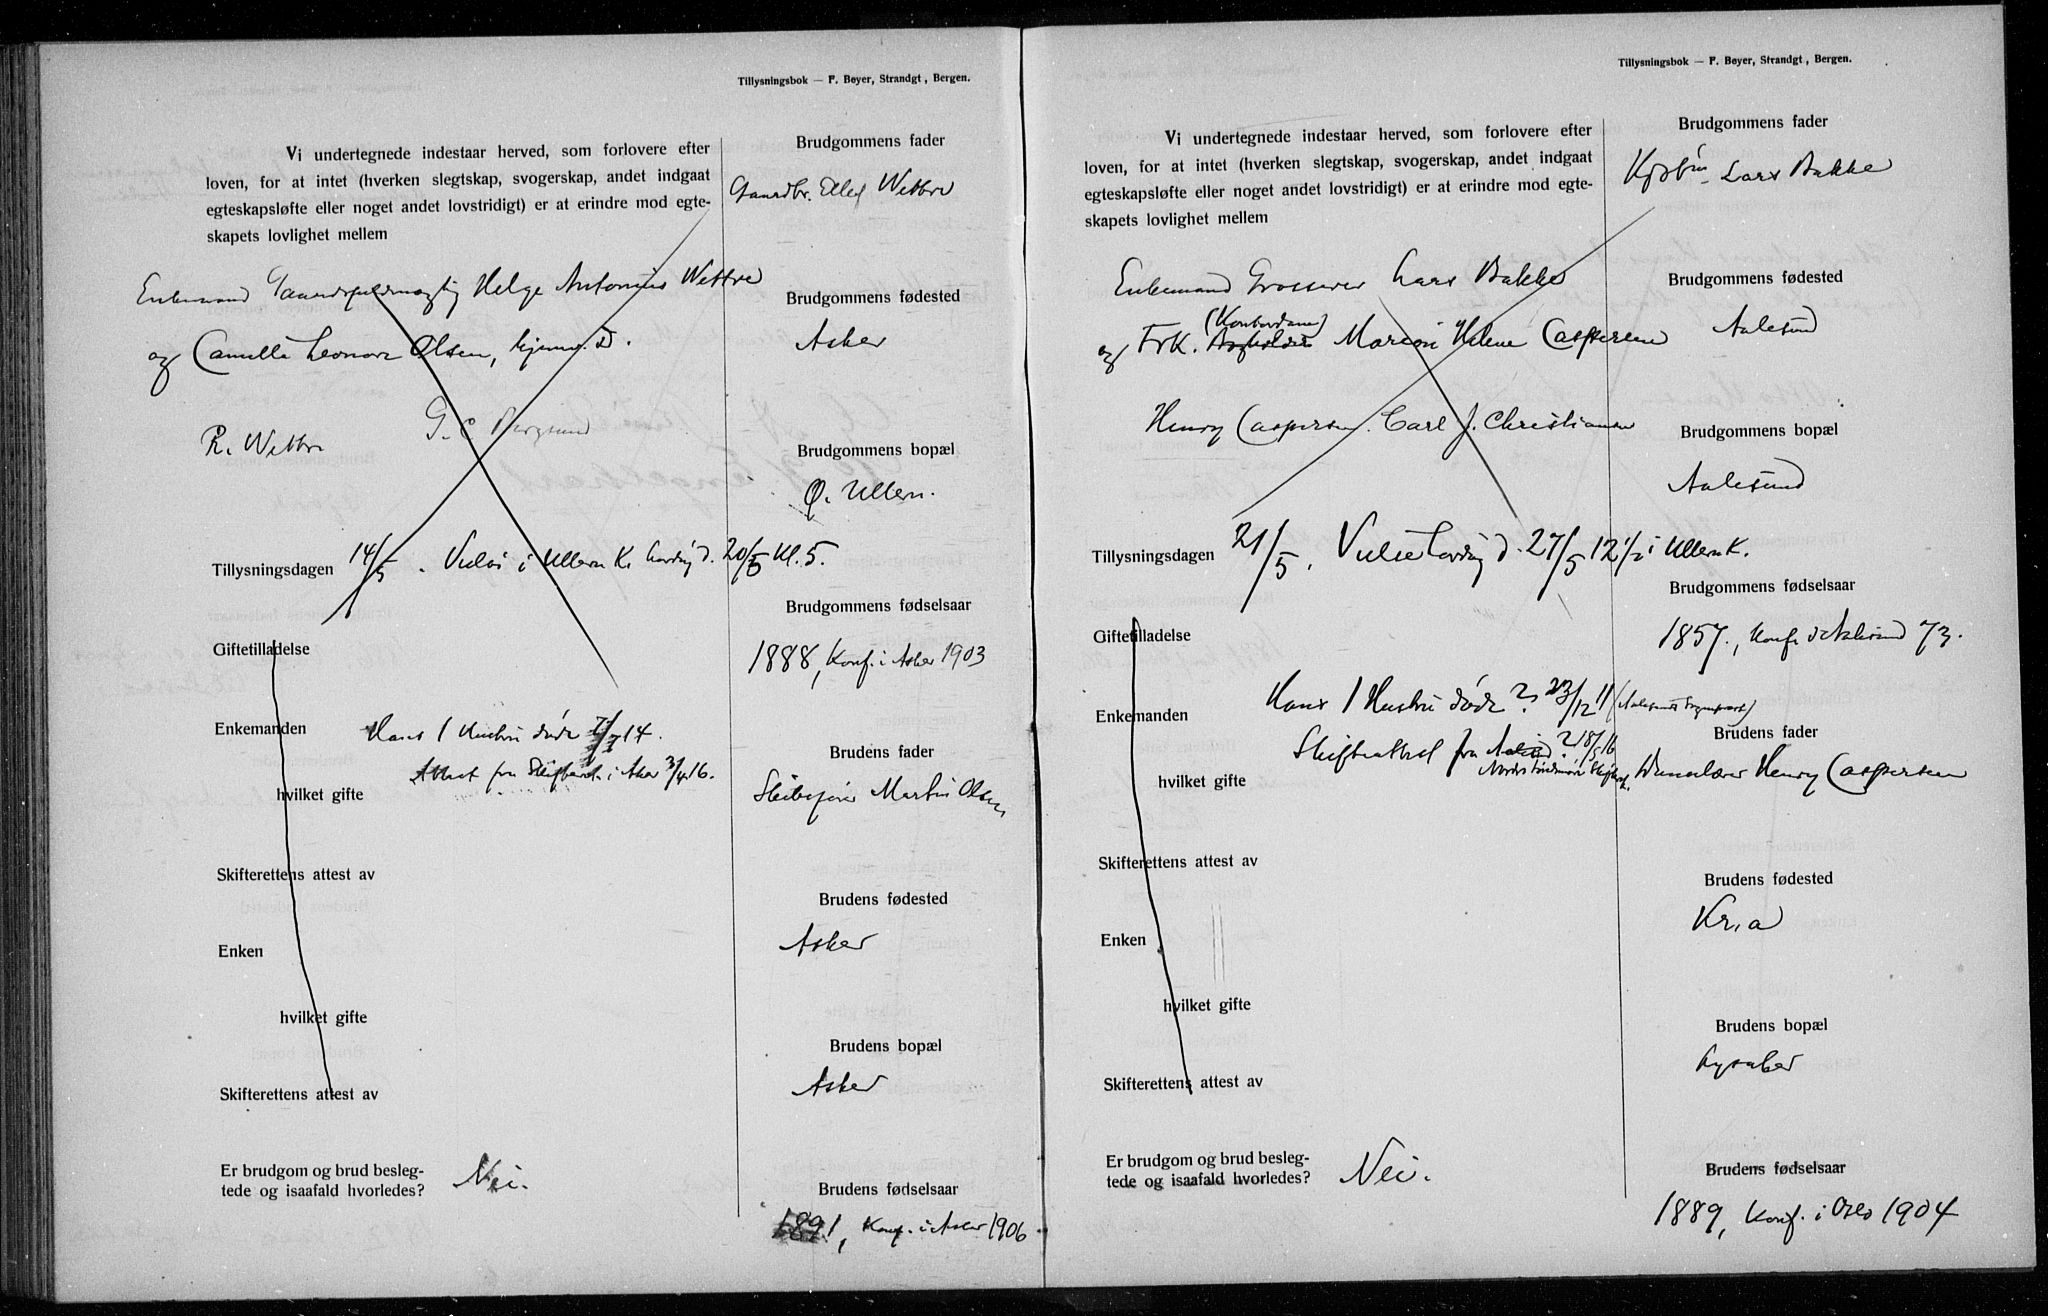 Tillysningsbok — F. Bøyer, Strandgt, Bergen.
Vi undertegnede indestaar herved, som forlovere efter
loven, for at intet (hverken slegtskap, svogerskap, andet indgaat
egteskapsløfte eller noget andet lovstridigt) er at erindre mod egte-
skapets lovlighet mellem
Enkemand Gaardsfuldmægtig Helge Antonius Wettre
og Camilla Leonora Olsen, hjemv. D.
R. Wettre G. C. Bergsund
Tillysningsdagen 14/5. Vielse i Ullern K. Lørdag d. 20/5 Kl. 5.
Giftetilladelse
Enkemanden Hans 1 Hustru døde 7/7 14.
Attest fra Skifteret i Asker 3/4 16.
hvilket gifte
Skifterettens attest av
Enken
hvilket gifte
Skifterettens attest av
Er brudgom og brud besleg-
tede og isaafald hvorledes? Nei.
Brudgommens fader
Gaardbr. Ellef Wettre
Brudgommens fødested
Asker
Brudgommens bopæl
Ø. Ullern.
Brudgommens fødselsaar
1888, Konf. i Asker 1903
Brudens fader
Martin Olsen
Brudens fødested
Asker
Brudens bopæl
Asker
Brudens fødselsaar
1891, Konf. i Asker 1906
Tillysningsbok — F. Bøyer, Strandgt, Bergen.
Vi undertegnede indestaar herved, som forlovere efter
loven, for at intet (hverken slegtskap, svogerskap, andet indgaat
egteskapsløfte eller noget andet lovstridigt) er at erindre mod egte-
skapets lovlighet mellem
Enkemand Grosserer Lars Bakke
(Kontordame)
og Frk. Marion Helene Caspersen
Henry Caspersen. Carl J. Christiansen
Tillysningsdagen 21/5. Vielse Lørdag d. 27/5 12 1/2 i Ullern K.
Giftetilladelse
Enkemanden Hans 1 Hustru døde ? 23/12 11
Skifteattest fra Aalesund ? 18/5 16
Nordre Søndmør Skifteret.
hvilket gifte
Skifterettens attest av
Enken
hvilket gifte
Skifterettens attest av
Er brudgom og brud besleg-
tede og isaafald hvorledes? Nei.
Brudgommens fader
Lars Bakke
Brudgommens fødested
Aalesund
Brudgommens bopæl
Aalesund
Brudgommens fødselsaar
1857., Konf. i Aalesund 73.
Brudens fader
Henry Caspersen
Brudens fødested
Kr.a
Brudens bopæl
Lysaker
Brudens fødselsaar
1889, Konf. i Oslo 1904